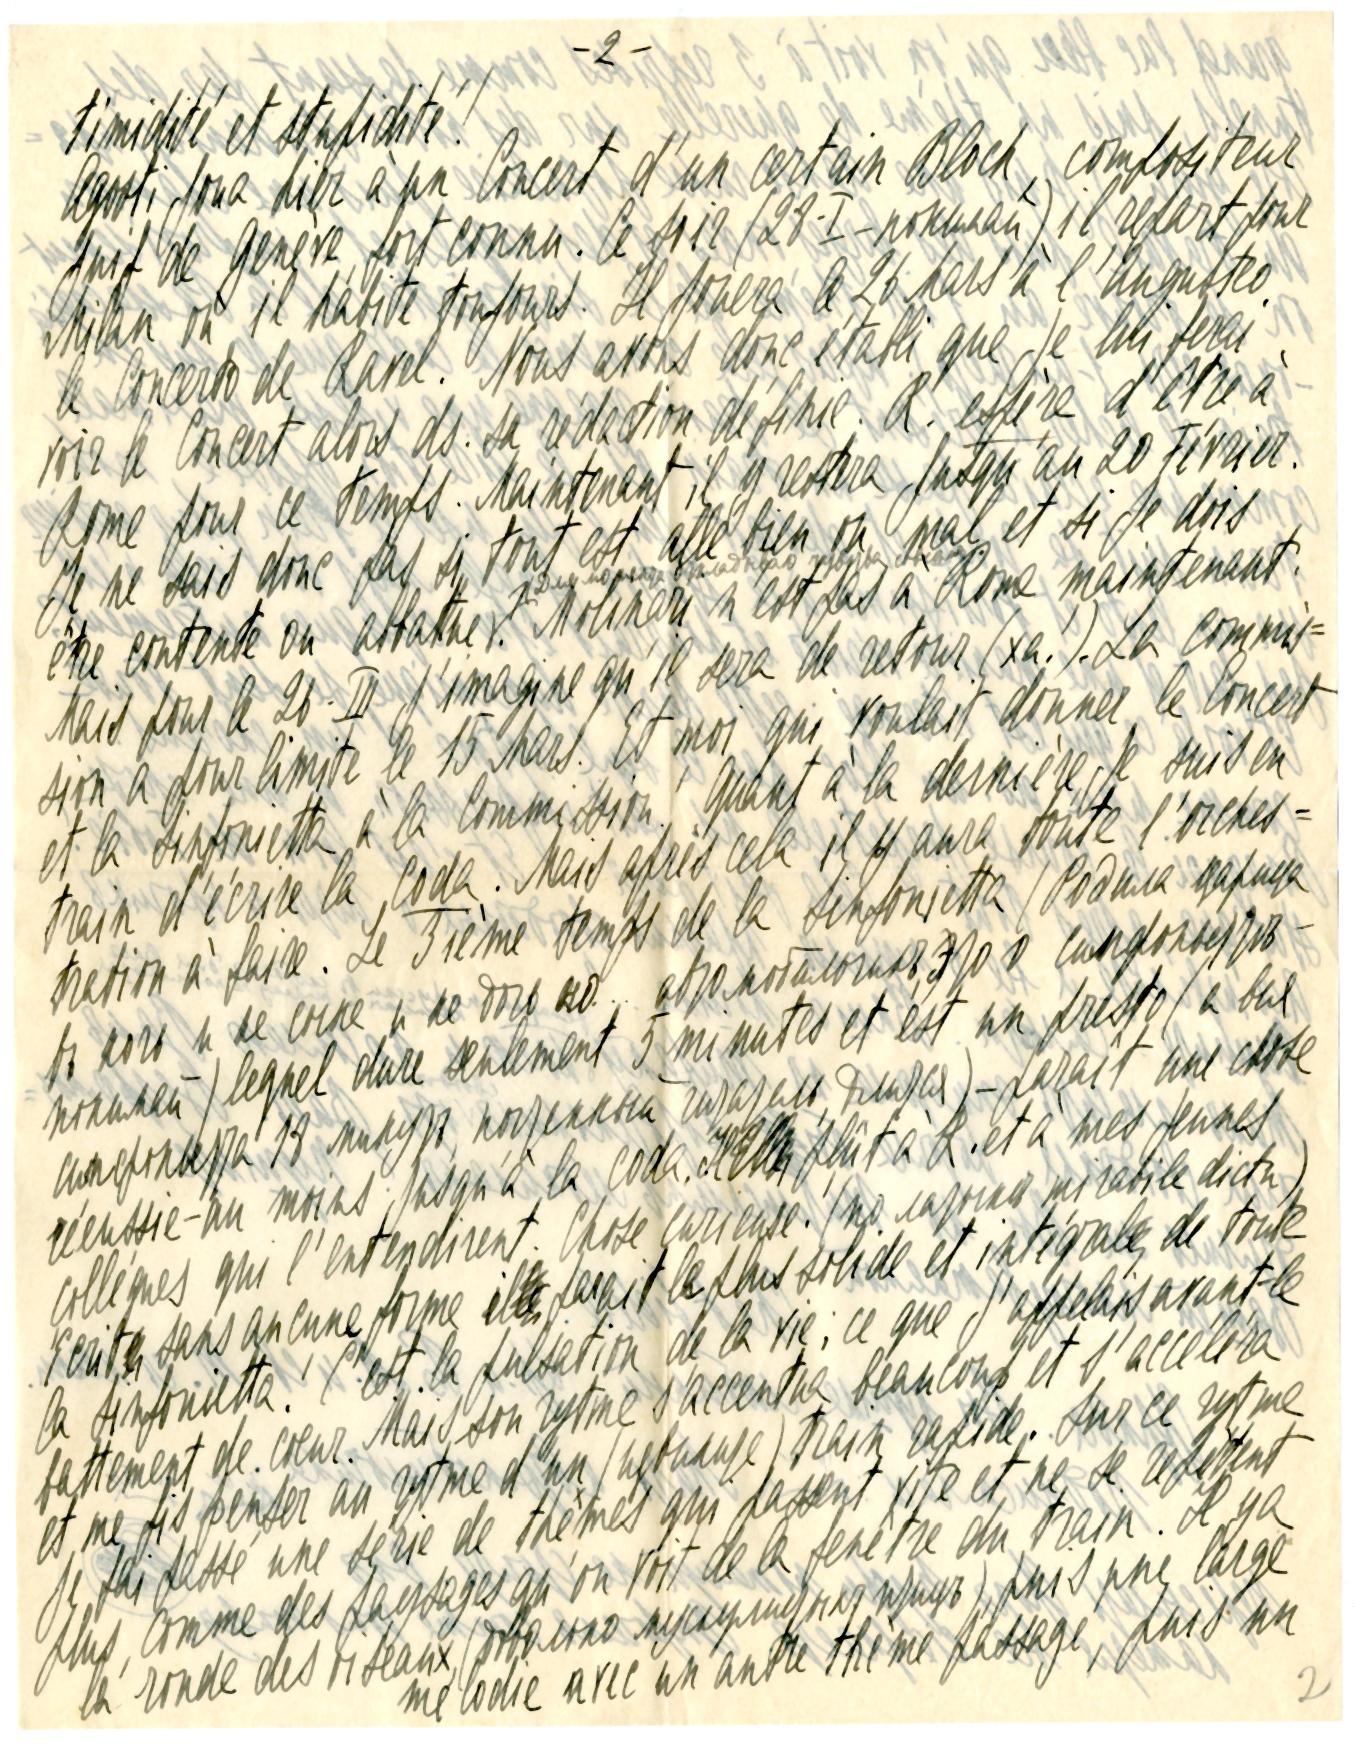 - 2 -
timidité et stupidité!
Agosti joua hier à un Concert d'un certain Bloch, compositeur
juif de Genève fort connu. Ce soir (28-I-поклнай) il repart pour
Milan où il habite toujours. Il jouera le 26 Mars à l'Augusteo
le Concerto de Ravel. Nous avons donc établi que je lui ferai
voir le Concert alors ds. sa rédaction définie. R. espère d'être à
Rome pour ce temps. Maintenant il y restera jusqu'au 20 Février.
Je ne sais donc pas si tout est allé bien ou mal et si je dois
être contente ou abbattue. Molinari n'est pas à Rome maintenant.
Mais pour le 26-III j'imagine qu'il sera de retour (ха!). La commis=
sion a pour limite le 15 Mars. Et moi qui voulait donner le Concert
et la Sinfonietta à la Commission! Quant à la dernière, je suis en
train d'écrire la Coda. Mais après cela il y aura toute l'orches=
tration à faire. Le 3ième temps de la Sinfonietta (Родила царица
въ ночь и не сына и не дочь но...
) lequel dure seulement 5 minutes et est un presto (а вся
симфоньетта 18 минут, ) - parait une chose
réeussie - au moins jusqu'à la coda. plût à R. et à mes jeunes
collégues qui l'entendirent. Chose curieuse! (по латыни mirabile dictu)
Ecrite sans aucune forme elle parait la plus solide et intégrale de toute
la Sinfonietta! C'est la pulsation de la vie; ce que j'appelais avant - le
battement de coeur. Mais son rytme s'accentua beaucoup et s'accéléra
et me fis penser au rytme d'un train rapide. Sur ce rytme
je fai passé une série de thèmes qui passent vite et ne se repètent
plus, comme des paysages qu'on voit de la fenêtre du train. Il y a
la ronde des oiseaux, (довольно птицъ), puis une large
mélodie avec un autre thème passage, puis un
2